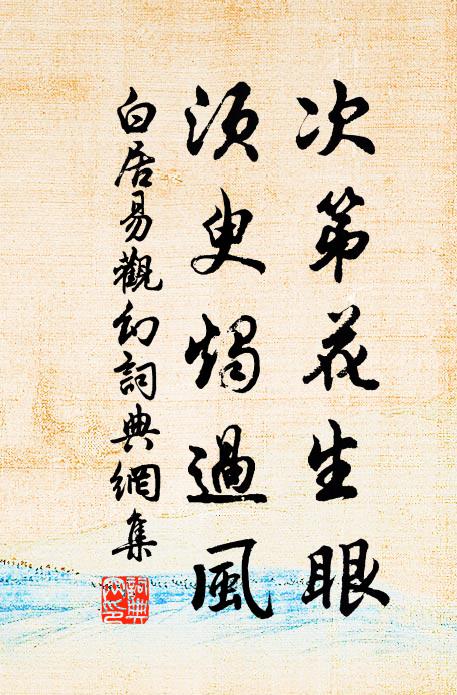 次第花生眼
須臾燭過風
白居易觀幻詞典網集